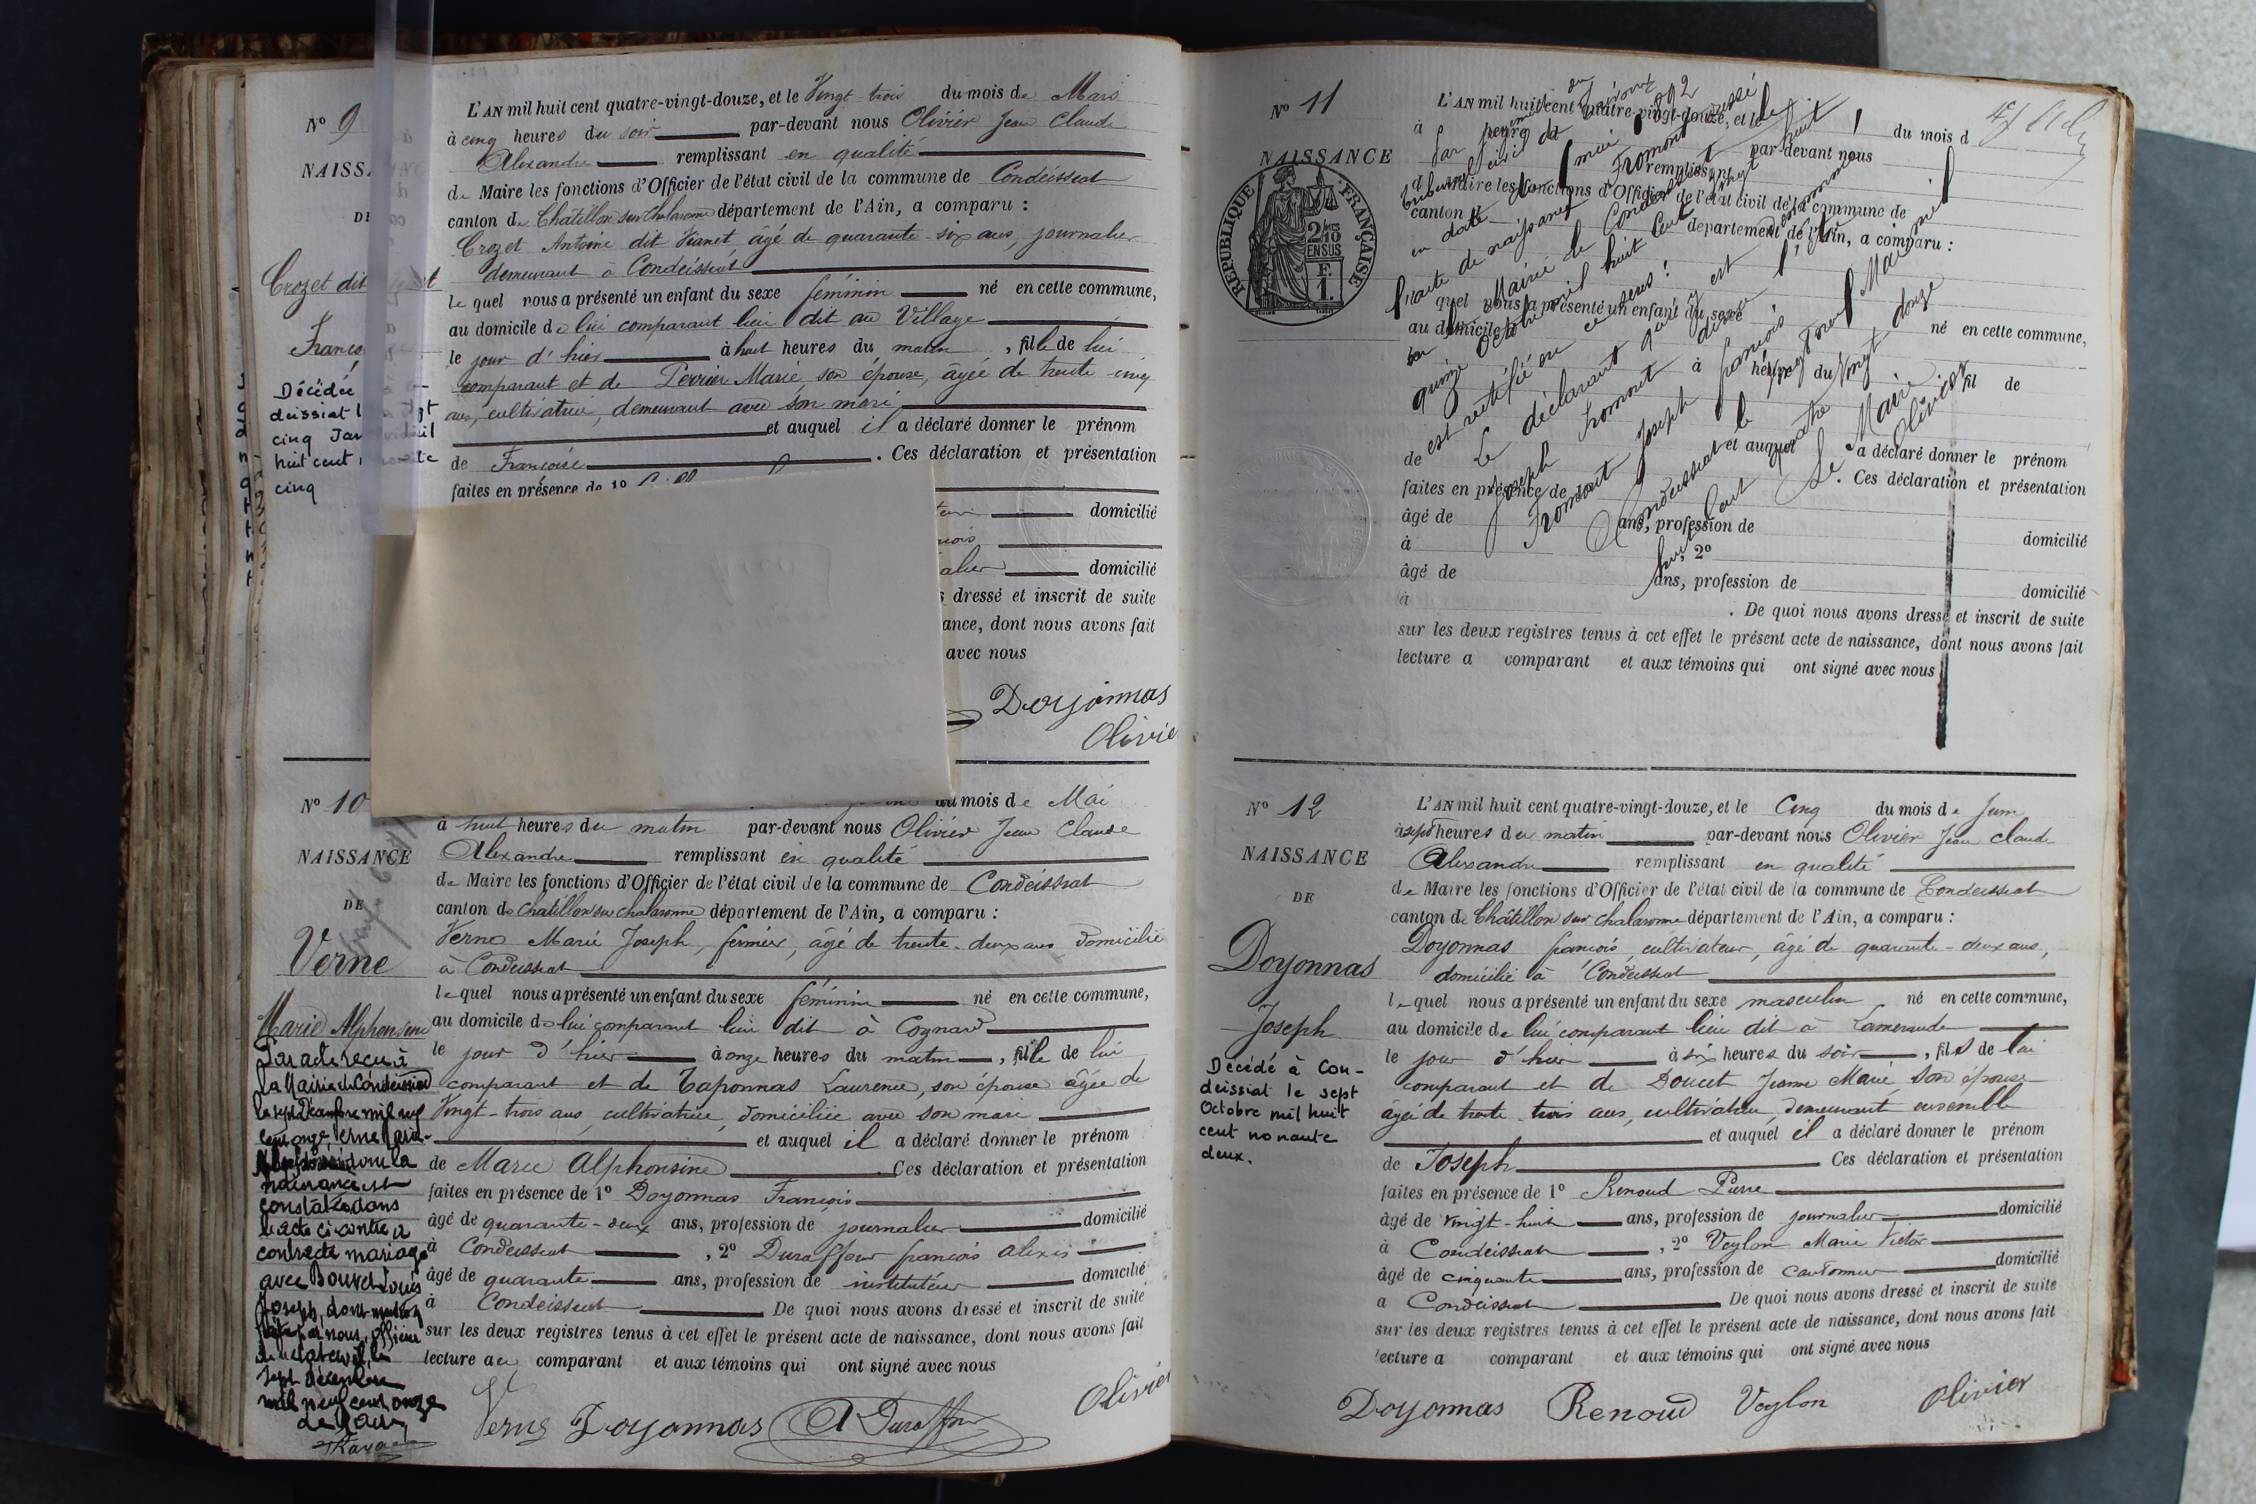 N° 9
NAISSA
DE
Crozet dit
Franço
Décédée
deissiat l
cinq Jan
huit cent
cinq
L'AN mil huit cent quatre-vingt-douze, et le Vingt-trois du mois de Mars
à cinq heures du soir par-devant nous Olivier Jean Claude
Alexandre remplissant en qualité
de Maire les fonctions d'Officier de l'état civil de la commune de Condeissiat
canton de Chatillon sur Chalaronne département de l'Ain, a comparu :
Crozet Antoine dit Vianet âgé de quarante-six ans, journalier
demeurant à Condeissiat
le quel nous a présenté un enfant du sexe féminin né en cette commune,
au domicile de lui comparant lieu dit au Village
le jour d'hier à huit heures du matin, fille de lui
comparant et de Perrier Marie, son épouse, âgée de trente-cinq
ans, cultivatrice, demeurant avec son mari
et auquel il a déclaré donner le prénom
de Françoise . Ces déclaration et présentation
faites en présence de 1°
domicilié
domicilié
dressé et inscrit de suite
ance, dont nous avons fait
avec nous
Doyonnas
Olivie
N° 10
NAISSANCE
DE
Verne
Marie Alphonsine
Par acte reçu à
la Mairie de Condeissiat
le sept Décembre mil neuf
cent onze, Verne Marie
Alphonsine dont la
naissance est
constatée dans
l'acte ci-contre a
contracté mariage
avec Bouvet Louis
Joseph, dont mention
faite par nous, officier
de l'état civil, le
sept décembre
mil neuf cent onze
du mois de Mai
à huit heures du matin par-devant nous Olivier Jean Claude
Alexandre remplissant en qualité
de Maire les fonctions d'Officier de l'état civil de la commune de Condeissiat
canton de Chatillon sur Chalaronne département de l'Ain, a comparu :
Verne Marie Joseph, fermier, âgé de trente-deux ans domicilié
à Condeissiat
le quel nous a présenté un enfant du sexe féminin né en cette commune,
au domicile de lui comparant lieu dit à Cognard
le jour d'hier à onze heures du matin, fille de lui
comparant et de Taponnas Laurence, son épouse âgée de
Vingt-trois ans, cultivatrice, domiciliée avec son mari
et auquel il a déclaré donner le prénom
de Marie Alphonsine Ces déclaration et présentation
faites en présence de 1° Doyonnas François
âgé de quarante-deux ans, profession de journalier domicilié
à Condeissiat , 2° Duraffour françois Alexis
âgé de quarante ans, profession de instituteur domicilié
à Condeissiat De quoi nous avons dressé et inscrit de suite
sur les deux registres tenus à cet effet le présent acte de naissance, dont nous avons fait
lecture au comparant et aux témoins qui ont signé avec nous
Verne Doyonnas A Duraffour Olivier
N° 11
NAISSANCE
RÉPUBLIQUE FRANÇAISE
2/10 EN SUS
F. 1.
L'AN mil huit cent quatre-vingt-douze, et le du mois d
à heures par-devant nous
remplissant
d Maire les fonctions d'Officier de l'état civil de la commune de
canton d département de l'Ain, a comparu :
quel nous a présenté un enfant du sexe né en cette commune,
au domicile d
à heures du fil de
et auquel a déclaré donner le prénom
de . Ces déclaration et présentation
faites en présence de
âgé de ans, profession de domicilié
à , 2°
âgé de ans, profession de domicilié
à . De quoi nous avons dressé et inscrit de suite
sur les deux registres tenus à cet effet le présent acte de naissance, dont nous avons fait
lecture a comparant et aux témoins qui ont signé avec nous
Le déclarant
Joseph Fromont
Fromont Joseph françois
Le Maire
Olivier
N° 12
NAISSANCE
DE
Doyonnas
Joseph
Décédé à Con-
deissiat le sept
Octobre mil huit
cent nonante
deux.
L'AN mil huit cent quatre-vingt-douze, et le Cinq du mois de Juin
à sept heures du matin par-devant nous Olivier Jean Claude
Alexandre remplissant en qualité
de Maire les fonctions d'Officier de l'état civil de la commune de Condeissiat
canton de Châtillon sur Chalaronne département de l'Ain, a comparu :
Doyonnas françois, cultivateur, âgé de quarante-deux ans,
domicilié à Condeissiat
le quel nous a présenté un enfant du sexe masculin né en cette commune,
au domicile de lui comparant lieu dit à
le jour d'hier à six heures du soir, fils de lui
comparant et de Doucet Jeanne Marie son épouse
âgée de trente trois ans, cultivatrice, demeurant ensemble
et auquel il a déclaré donner le prénom
de Joseph Ces déclaration et présentation
faites en présence de 1° Renoud Pierre
âgé de vingt-huit ans, profession de journalier domicilié
à Condeissiat , 2° Veylon Marie Victor
âgé de cinquante ans, profession de cantonnier domicilié
à Condeissiat De quoi nous avons dressé et inscrit de suite
sur les deux registres tenus à cet effet le présent acte de naissance, dont nous avons fait
lecture a comparant et aux témoins qui ont signé avec nous
Doyonnas Renoud Veylon Olivier